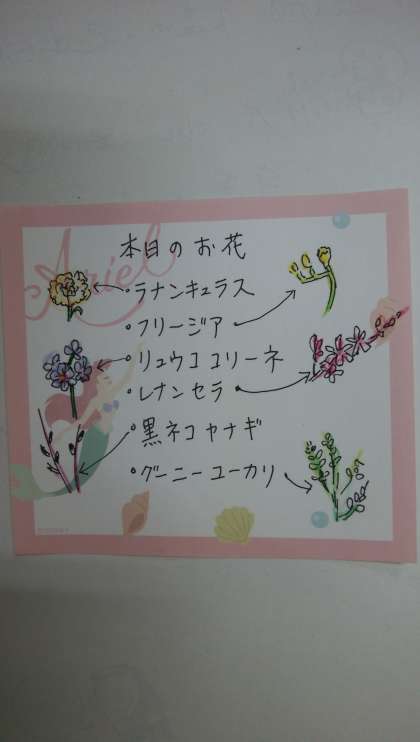 Ariel
本日のお花
・ラナンキュラス
・フリージア
・リュウココリーネ
・レナンセラ
・黒ネコヤナギ
・グーニーユーカリ